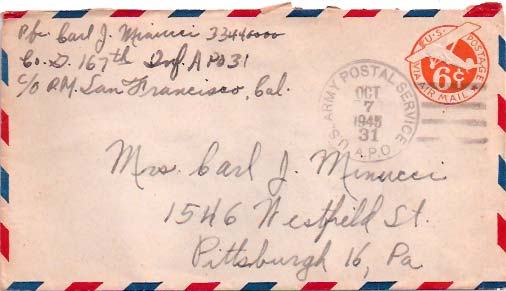 Pfc Carl J. Minucci 33440000
Co. D. 167th Inf. APO 31
C/O P.M. San Francisco, Cal.
U.S. POSTAGE
6¢
VIA AIR MAIL
U.S. ARMY POSTAL SERVICE
OCT
7
1945
31
A.P.O.
Mrs. Carl J. Minucci
1546 Westfield St.
Pittsburgh 16, Pa